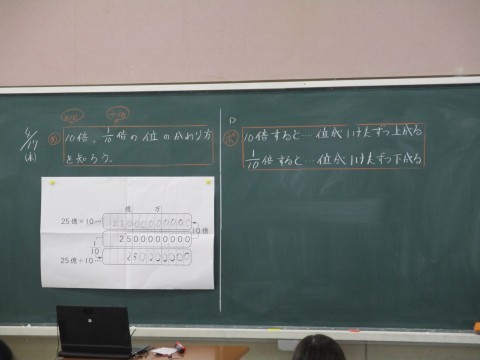 4/17
(木)
×10 ÷10
め 10倍、1/10倍の位の変わり方
を知ろう。
ま 10倍すると…位が1けたずつ上がる
1/10倍すると…位が1けたずつ下がる
億 万
25億×10… 25000000000
2500000000
10倍
1/10
25億÷10… 250000000